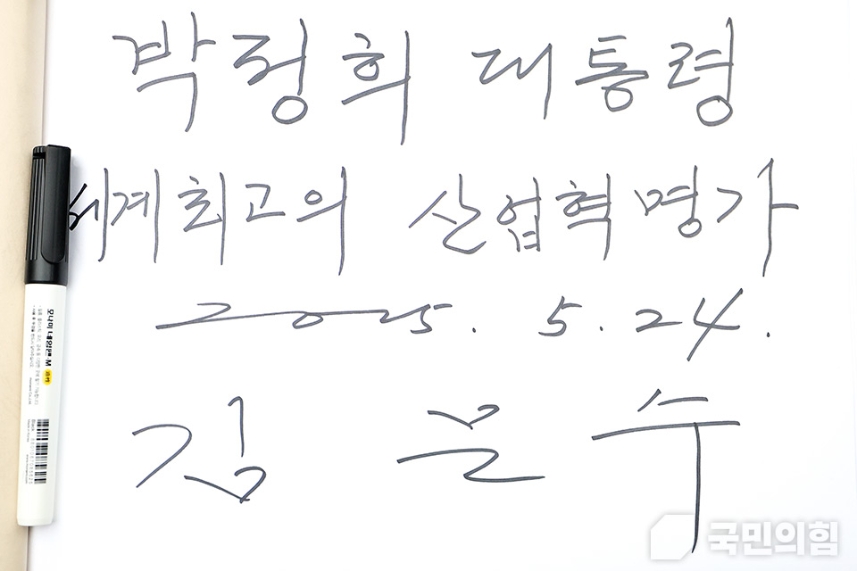 박정희 대통령
세계최고의 산업혁명가
2025. 5. 24.
김문수
모나미 네임펜 M
국민의힘